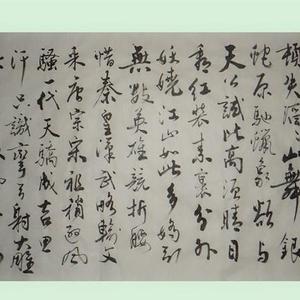 頓失滔滔山舞銀
蛇原馳蠟象欲与
天公試比高須晴日
看红装素裹分外
妖嬈江山如此多嬌引
無數英雄競折腰
惜秦皇漢武略輸文
采唐宗宋祖稍遜風
騷一代天驕成吉思
汗只識彎弓射大雕